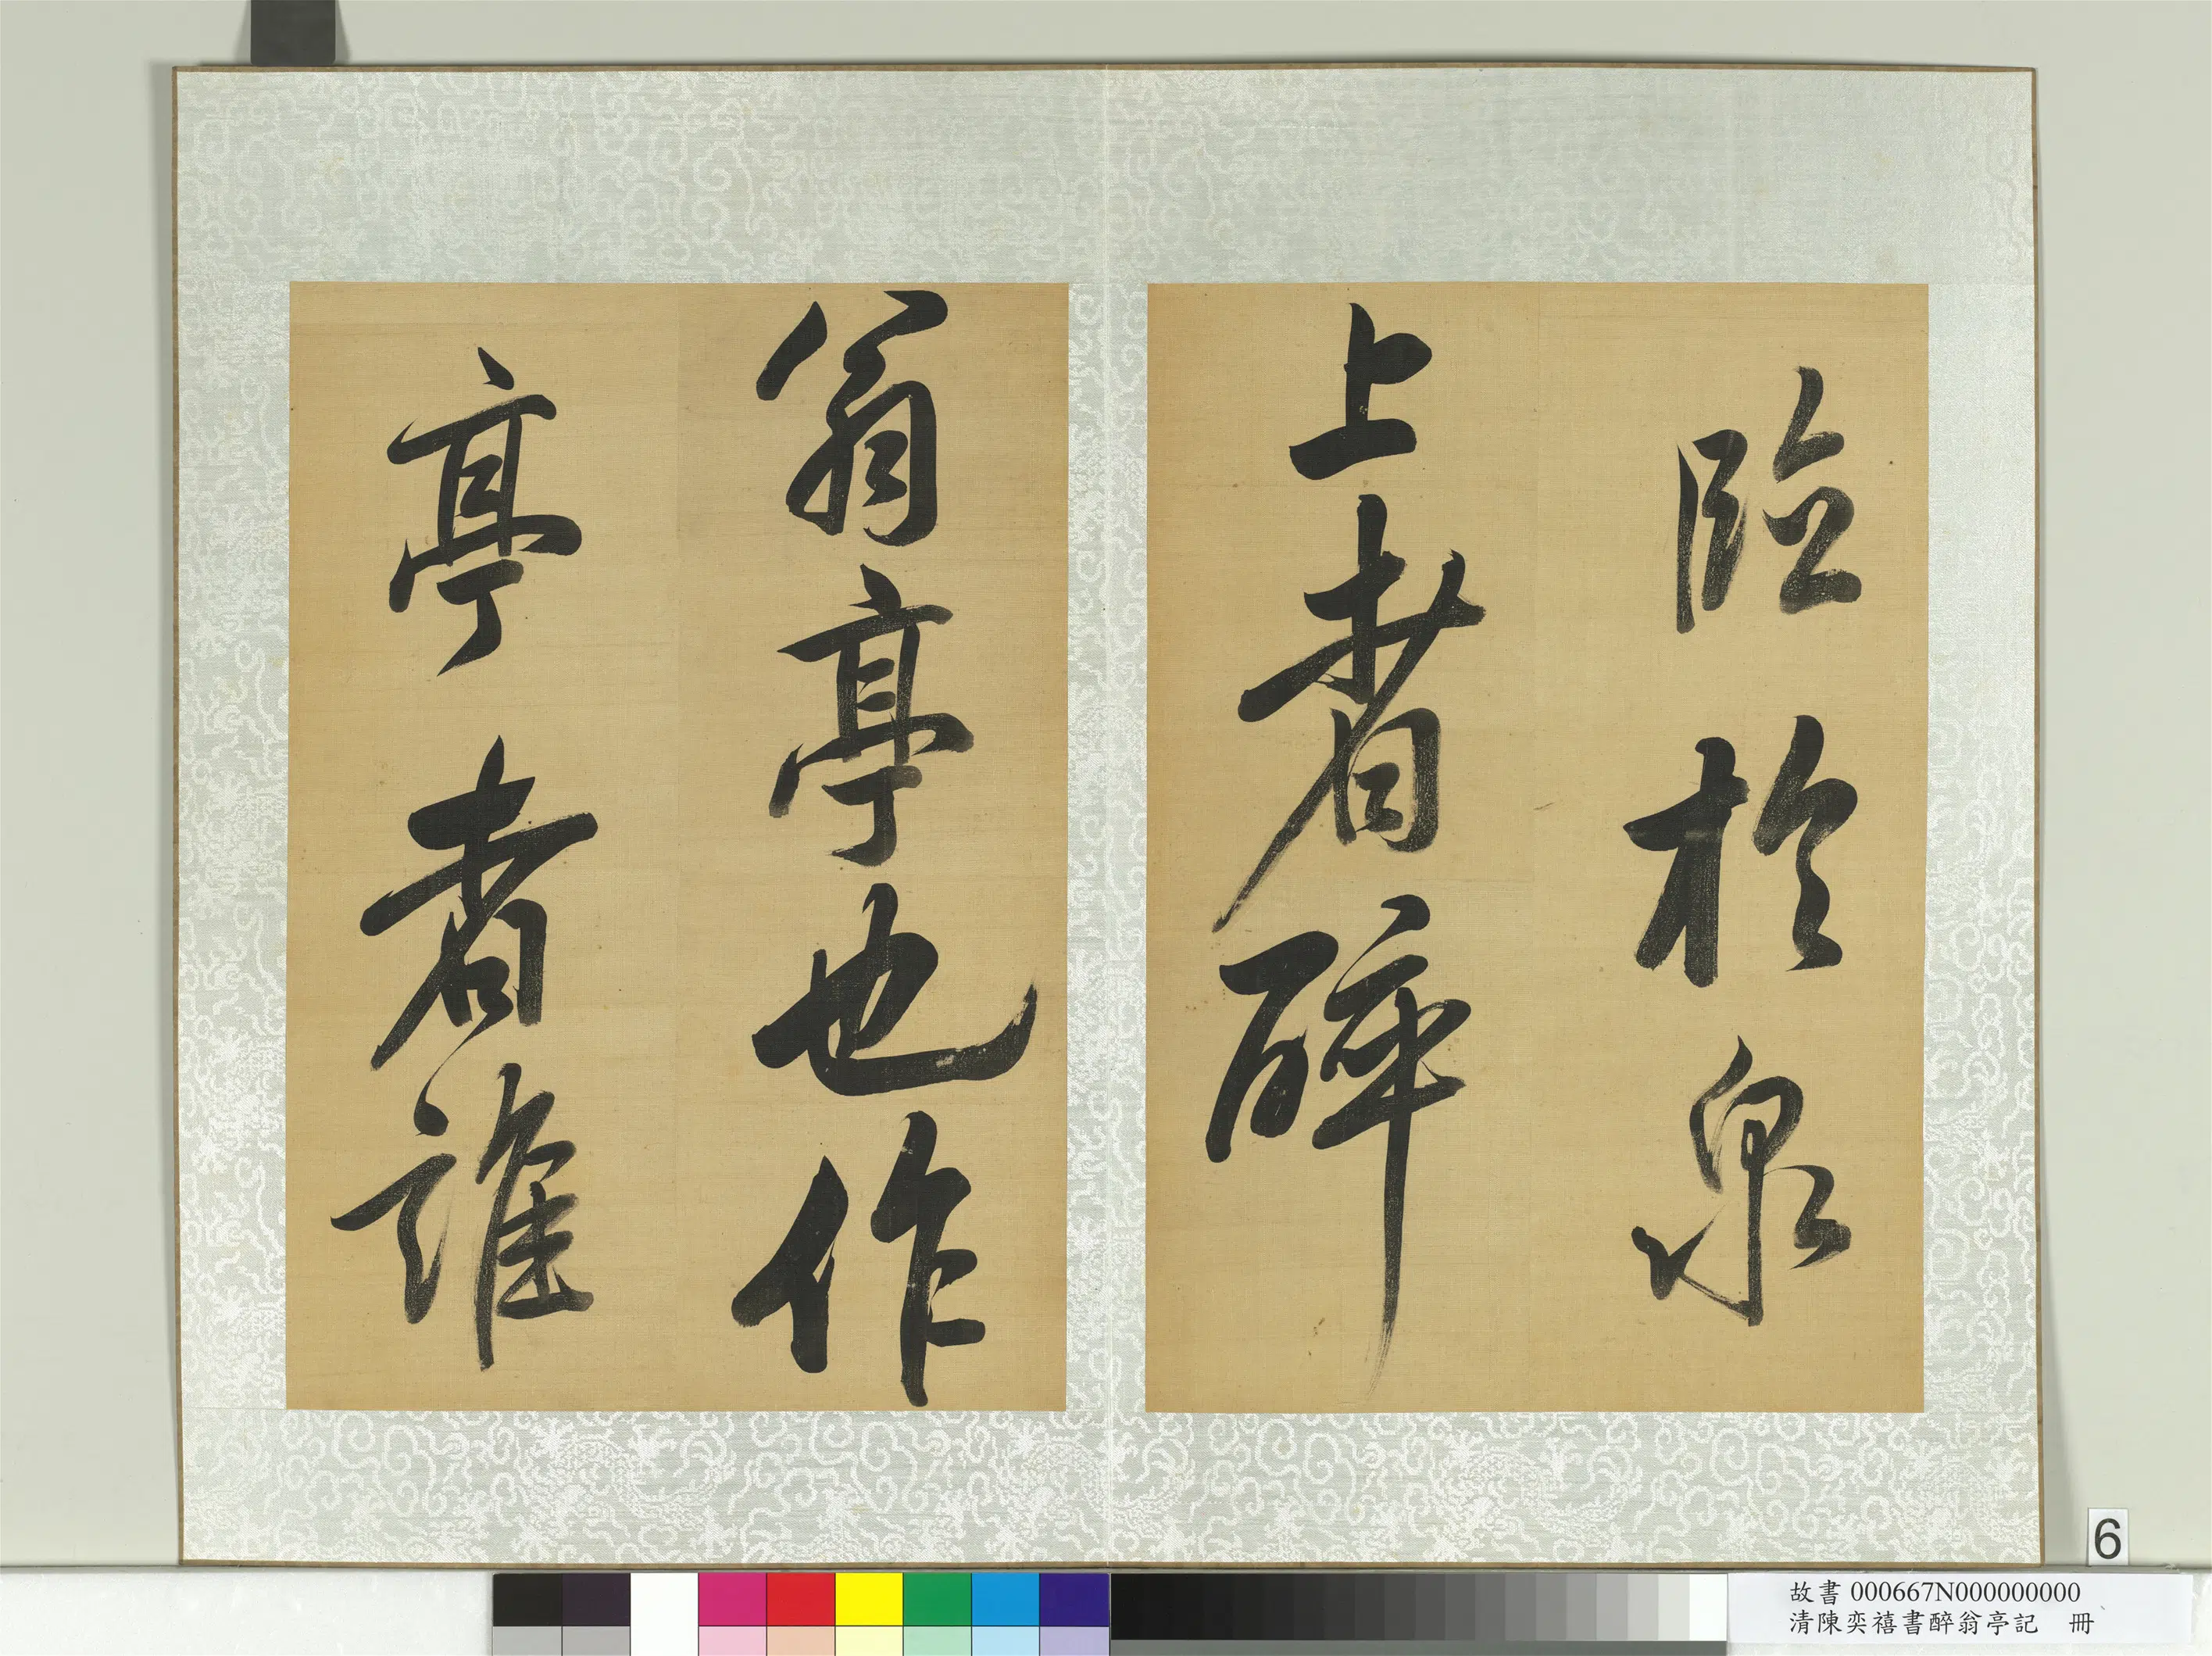 臨於泉
上者醉
翁亭也作
亭者誰
6
故書 000667N000000000
清陳奕禧書醉翁亭記 冊